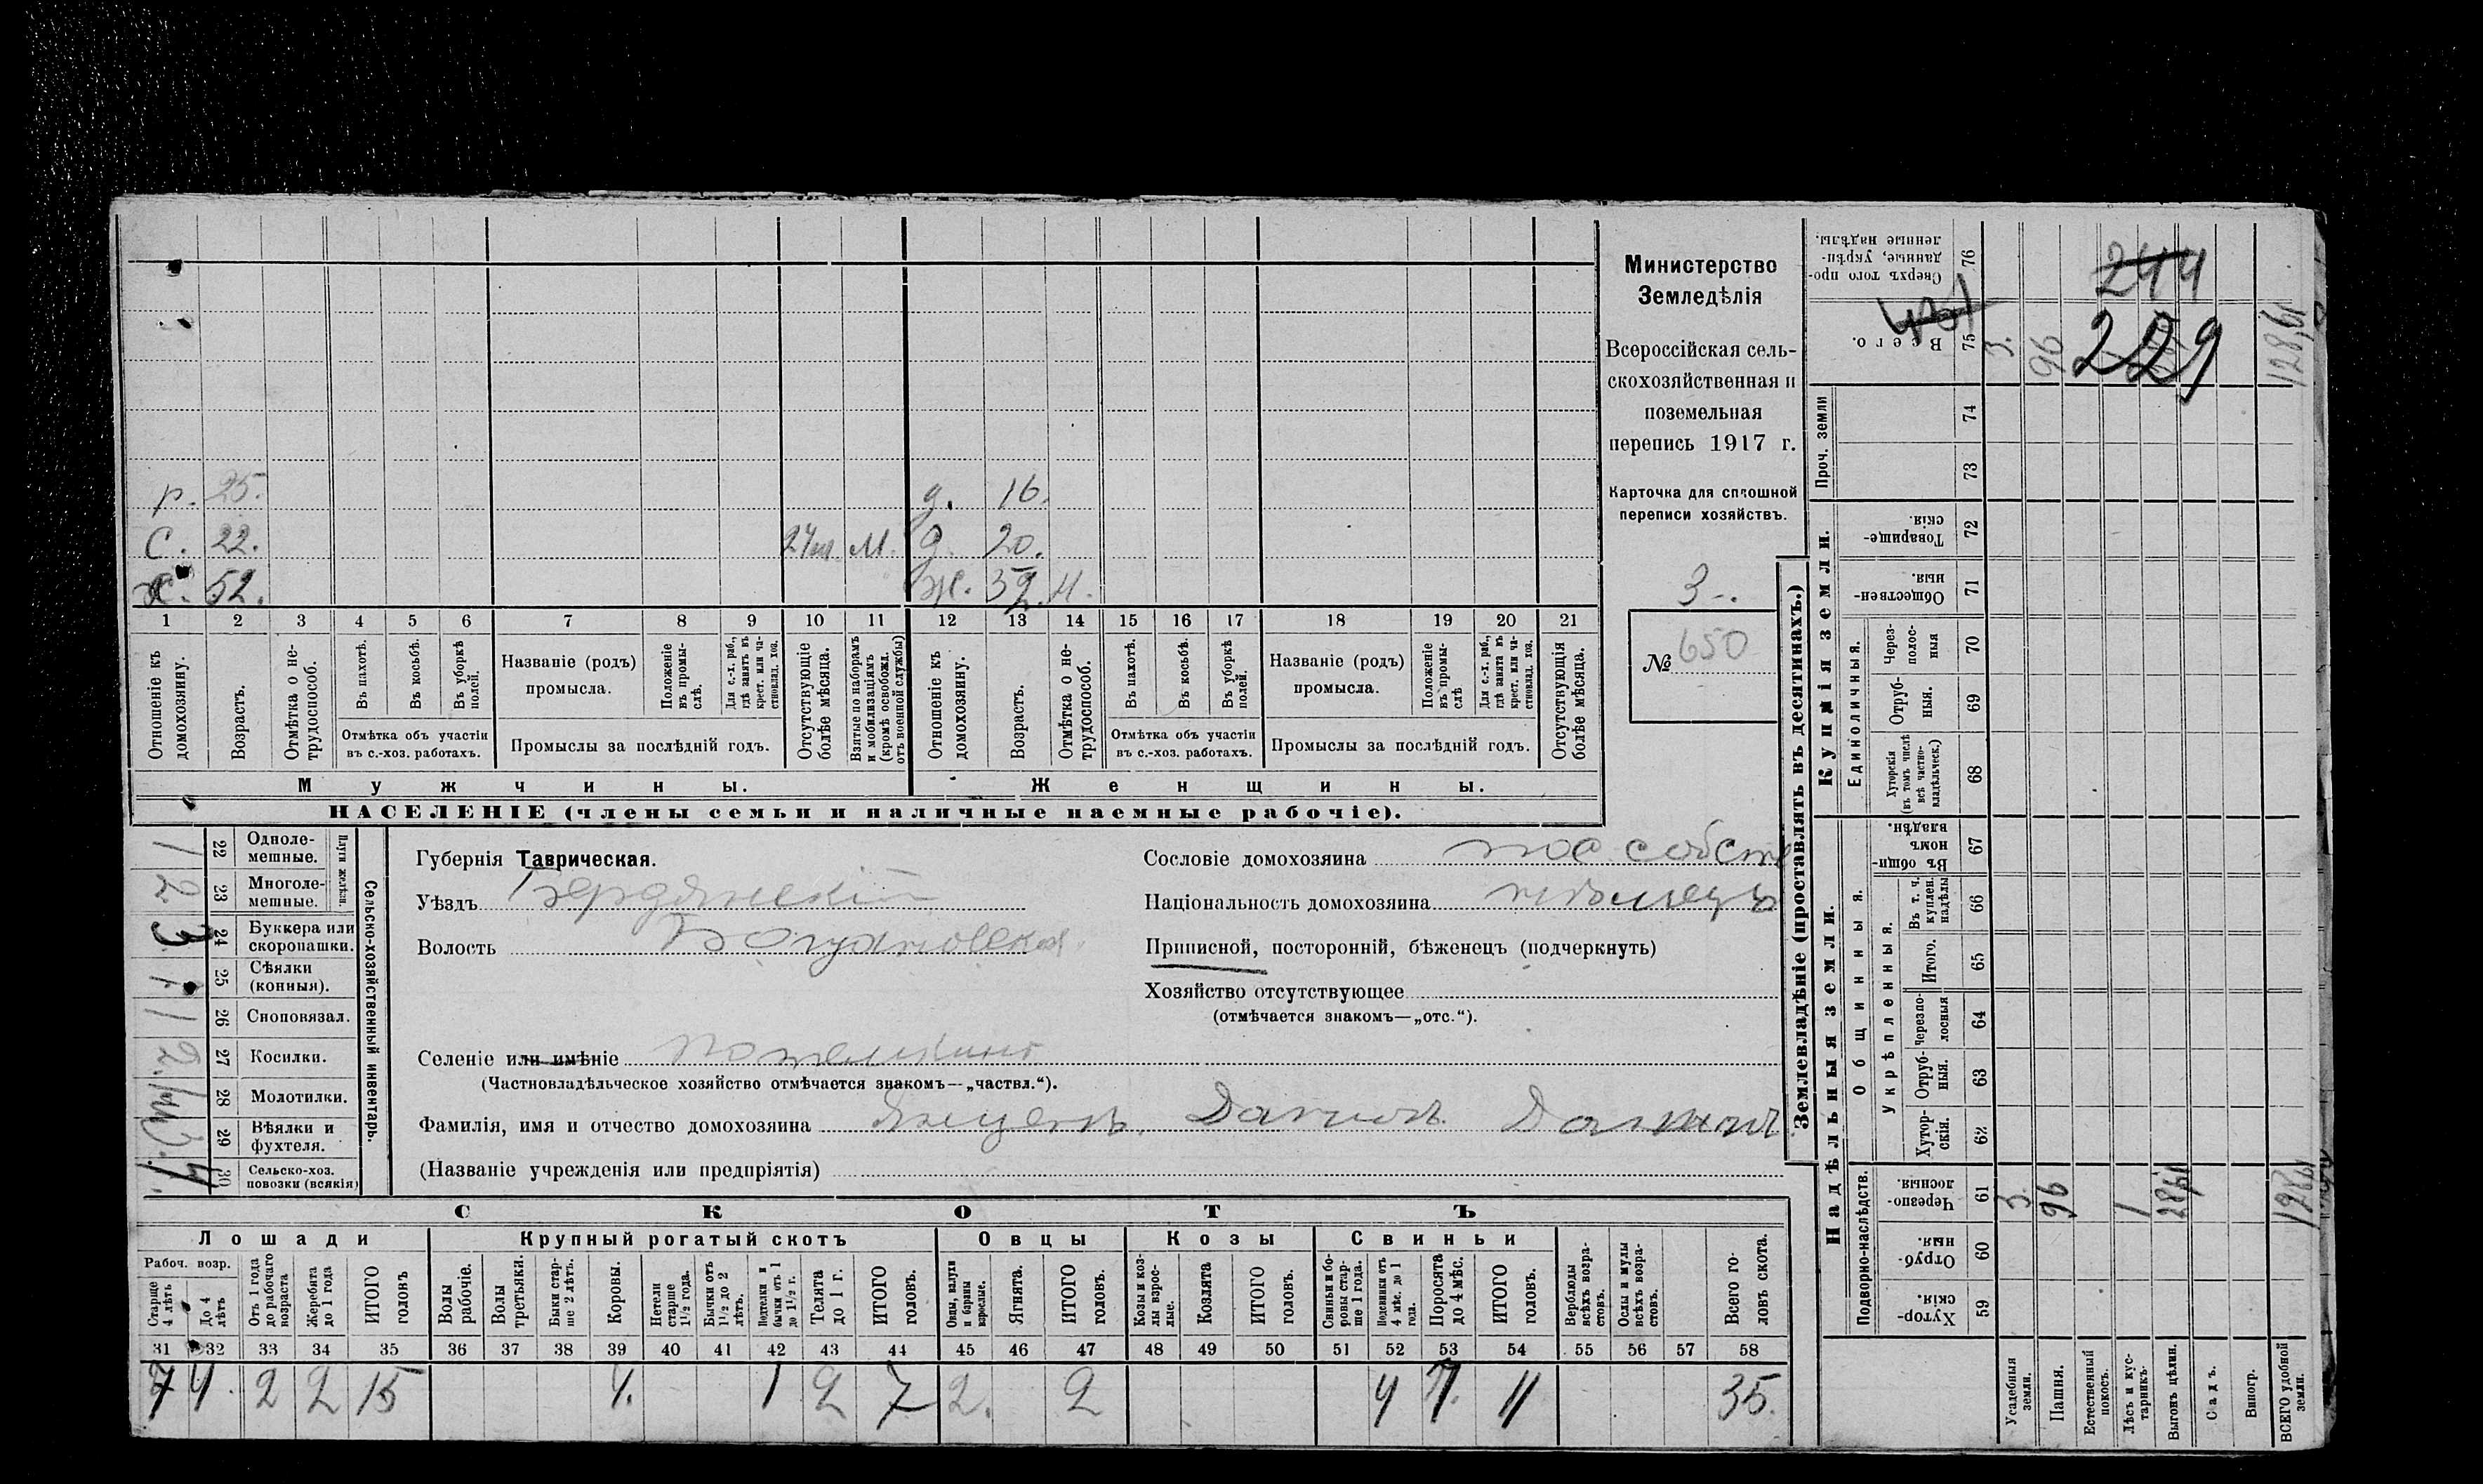 р. 25. д. 16.
С. 22. М. д. 20.
х. 52. ж. 52. н.
1 2 3 4 5 6 7 8 9 10 11 12 13 14 15 16 17 18 19 20 21
Отношеніе къ домохозяину.
Возрастъ.
Отмѣтка о не-
трудоспособ.
Въ пахотѣ.
Въ косьбѣ.
Въ уборкѣ полей.
Отмѣтка объ участіи
въ с.-хоз. работахъ.
Названіе (родъ)
промысла.
Положеніе
въ промы-
слѣ.
Для с.-х. раб.,
гдѣ занятъ въ
крест. или ча-
стновлад. хоз.
Промыслы за послѣдній годъ.
Отсутствующіе
болѣе мѣсяца.
Взятые по наборамъ
и мобилизаціямъ
(кромѣ освобожд.
отъ военной службы)
Отношеніе къ
домохозяину.
Возрастъ.
Отмѣтка о не-
трудоспособ.
Въ пахотѣ.
Въ косьбѣ.
Въ уборкѣ
полей.
Отмѣтка объ участіи
въ с.-хоз. работахъ.
Названіе (родъ)
промысла.
Положеніе
въ промы-
слѣ
Для с.-х. раб.,
гдѣ занята въ
крест. или ча-
стновлад. хоз.
Промыслы за послѣдній годъ.
Отсутствующія
болѣе мѣсяца.
Мужчины. Женщины.
НАСЕЛЕНІЕ (члены семьи и наличные наемные рабочіе).
Министерство
Земледѣлія
Всероссійская сель-
скохозяйственная и
поземельная
перепись 1917 г.
Карточка для сплошной
переписи хозяйствъ.
3
№ 650
Сельско-хозяйственный инвентарь.
Плуги желѣзн.
22 Одноле-
мешные. 1
23 Многоле-
мешные. 2
24 Буккера или
скоропашки. 3
25 Сѣялки
(конныя). 1
26 Сноповязал. 1
27 Косилки. 2
28 Молотилки.
29 Вѣялки и
фухтеля.
30 Сельско-хоз.
повозки (всякія) 4
Губернія Таврическая.
Уѣздъ Бердянскій
Волость Богдановская
Селеніе или имѣніе
(Частновладѣльческое хозяйство отмѣчается знакомъ—„частвл.“).
Фамилія, имя и отчество домохозяина
(Названіе учрежденія или предпріятія)
Сословіе домохозяина пос. собств
Національность домохозяина нѣмецъ
Приписной, посторонній, бѣженецъ (подчеркнуть)
Хозяйство отсутствующее
(отмѣчается знакомъ—„отс.“).
СКОТЪ
Лошади Крупный рогатый скотъ Овцы Козы Свиньи
Рабоч. возр.
Старше
4 лѣтъ
До 4
лѣтъ
Отъ 1 года
до рабочаго
возраста
Жеребята
до 1 года
ИТОГО
головъ
Волы
рабочіе.
Волы
третьяки.
Быки стар-
ше 2 лѣтъ.
Коровы.
Нетели
старше
1½ года.
Бычки отъ
1½ до 2
лѣтъ.
Подтелки и
бычки отъ 1
до 1½ г.
Телята
до 1 г.
ИТОГО
головъ.
Овцы, валухи
и бараны
взрослые.
Ягнята.
ИТОГО
головъ.
Козы и коз-
лы взрос-
лые.
Козлята
ИТОГО
головъ.
Свиньи и бо-
ровы стар-
ше 1 года.
Подсвинки отъ
4 мѣс. до 1
года.
Поросята
до 4 мѣс.
ИТОГО
головъ.
Верблюды
всѣхъ возра-
стовъ.
Ослы и мулы
всѣхъ возра-
стовъ.
Всего го-
ловъ скота.
31 32 33 34 35 36 37 38 39 40 41 42 43 44 45 46 47 48 49 50 51 52 53 54 55 56 57 58
7 4. 2 2 15 4. 1 2 7 2. 2 4 7. 11 35.
Землевладѣніе (проставлять въ десятинахъ.)
Надѣльныя земли. Купчія земли. Проч. земли
Подворно-наслѣдств. Общинныя. Единоличныя.
Укрѣпленныя.
Хутор-
скія. 59
Отруб-
ныя. 60
Черезпо-
лосныя. 61
Хутор-
скія. 62
Отруб-
ныя. 63
Черезпо-
лосныя 64
Итого. 65
Въ т. ч.
куплен.
надѣлы 66
Въ общин-
номъ
владѣн. 67
Хуторскія
(въ томъ числѣ
всѣ частно-
владѣльческ.) 68
Отруб-
ныя. 69
Через-
полос-
ныя 70
Обществен-
ныя. 71
Товарище-
скія. 72
73
74
Всего. 75
Сверхъ того про-
данные, укрѣп-
ленные надѣлы. 76
Усадебныя
земли. 3 3.
Пашня. 96 96
Естественный
покосъ.
Лѣсъ и кус-
тарникъ. 1
Выгонъ цѣлин. 28,61
Садъ.
Виногр.
ВСЕГО удобной
земли. 128,61 128,61
244
229